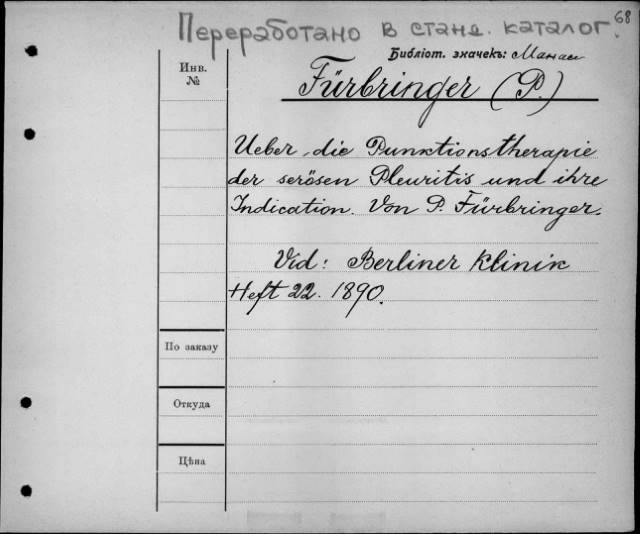 Переработано в станд. каталог.
68
Библіот. значекъ: Манасс
Инв.
№
Fürbringer (P.)
Ueber die Punktionstherapie
der serösen Pleuritis und ihre
Indication. Von P. Fürbringer.
Vid: Berliner Klinik
Heft 22. 1890.
По заказу
Откуда
Цѣна